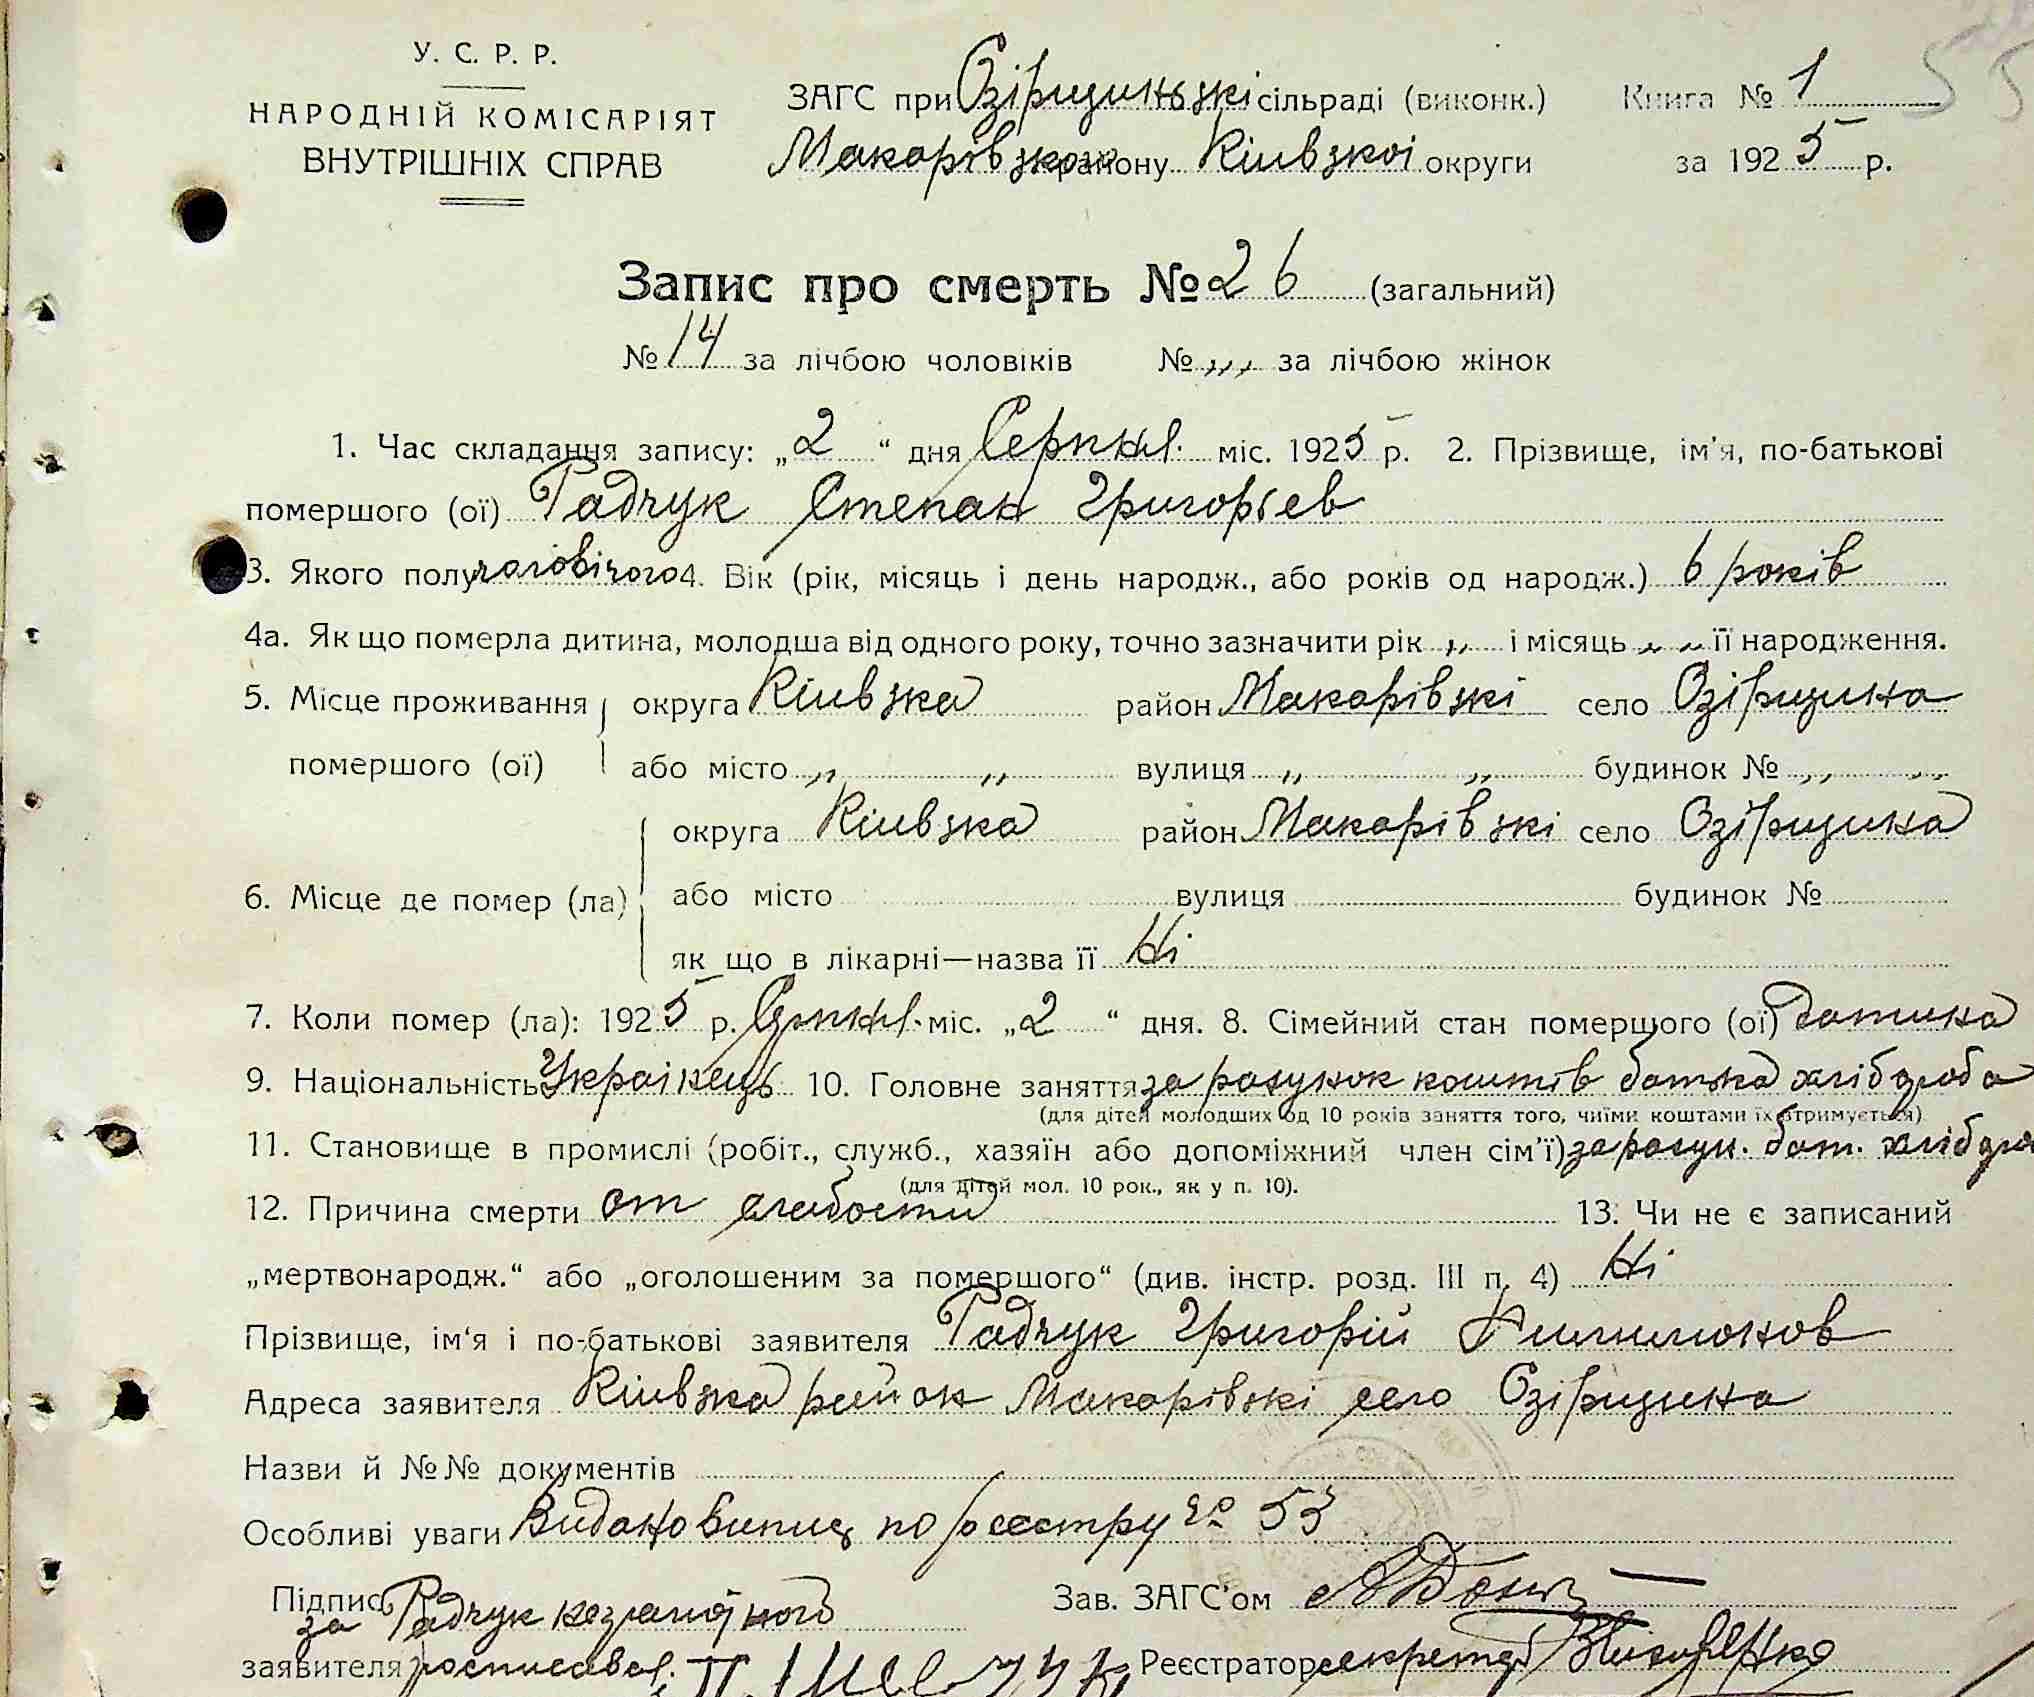 У. С. Р. Р.
НАРОДНІЙ КОМІСАРІЯТ
ВНУТРІШНІХ СПРАВ
ЗАГС при Озірщиньзкі сільраді (виконк.) Книга № 1
Макарівзкого району Кіивзкоі округи за 1925 р.
Запис про смерть № 26 (загальний)
№ 14 за лічбою чоловіків № „„ за лічбою жінок
1. Час складання запису: „2“ дня Серпня міс. 1925 р. 2. Прізвище, ім'я, по-батькові
помершого (ої) Радчук Степан Григорієв
3. Якого полу чоловічого 4. Вік (рік, місяць і день народж., або років од народж.) 6 років
4а. Як що померла дитина, молодша від одного року, точно зазначити рік „ і місяць „ „ її народження.
5. Місце проживання округа Кіивзка район Макарівзкі село Озірщина
помершого (ої) або місто „ „ вулиця „ „ будинок № „ „
округа Кіивзка район Макарівзкі село Озірщина
6. Місце де помер (ла) або місто вулиця будинок №
як що в лікарні—назва її Ні
7. Коли помер (ла): 1925 р. Серпня міс. „2“ дня. 8. Сімейний стан помершого (ої) дитина
9. Національність Украінець 10. Головне заняття за рахунок коштів батька хлібороба
(для дітей молодших од 10 років заняття того, чиїми коштами їх утримується)
11. Становище в промислі (робіт., служб., хазяїн або допоміжний член сім'ї) за рахун. бат. хлібороб
(для дітей мол. 10 рок., як у п. 10).
12. Причина смерти от слабости 13. Чи не є записаний
„мертвонародж.“ або „оголошеним за помершого“ (див. інстр. розд. III п. 4) Ні
Прізвище, ім'я і по-батькові заявителя Радчук Григорій
Адреса заявителя Кіивзка район Макарівзкі село Озірщина
Назви й №№ документів
Особливі уваги Видано випис по реестру № 53
Підпис за Радчук
заявителя росписавсь
Зав. ЗАГС'ом
Реєстратор секретар